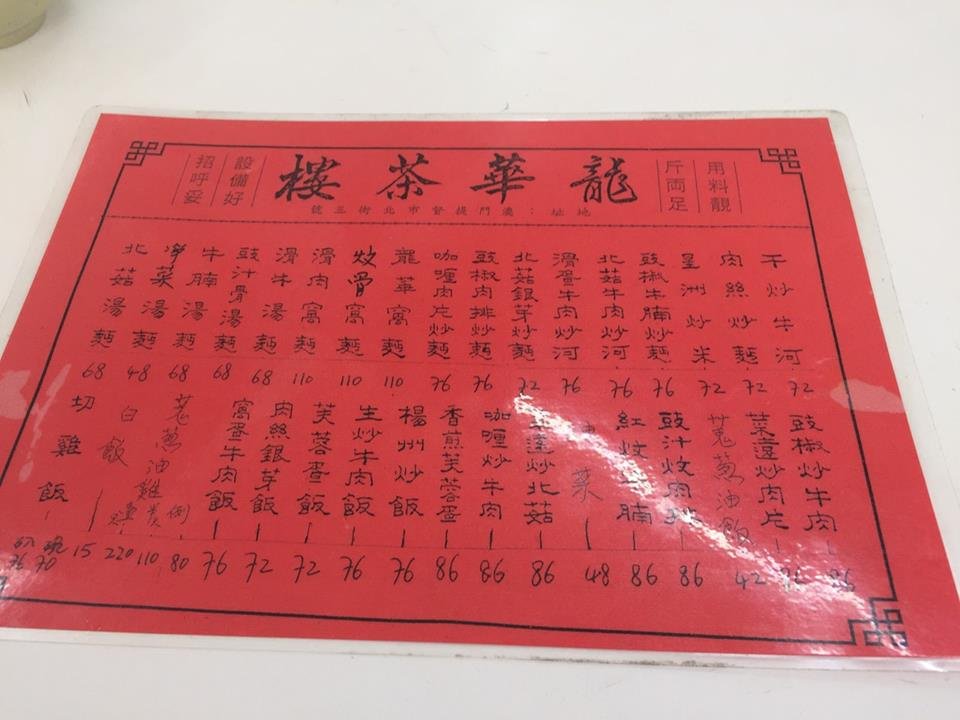 龍華茶樓
用料靚
斤両足
設備好
招呼妥
地址：澳門提督市北街三號
干炒牛河 72
肉絲炒麵 72
星洲炒米 72
豉椒牛腩炒麵 76
北菇牛肉炒河 76
滑蛋牛肉炒河 76
北菇銀芽炒麵 72
豉椒肉排炒麵 76
咖喱肉片炒麵 76
龍華窩麵 110
炆骨窩麵 110
滑肉窩麵 110
滑牛湯麵 68
豉汁骨湯麵 68
牛腩湯麵 68
淨菜湯麵 48
北菇湯麵 68
豉椒炒牛肉 86
菜遠炒肉片 86
蔥油飯 42
豉汁炆肉排 86
紅炆牛腩 86
菜 48
炒北菇 86
咖喱炒牛肉 86
香煎芙蓉蛋 86
楊州炒飯 76
生炒牛肉飯 76
芙蓉蛋飯 72
肉絲銀芽飯 72
窩蛋牛肉飯 76
蔥油雞 例 80 110 220
白飯 15
切雞飯 70 76